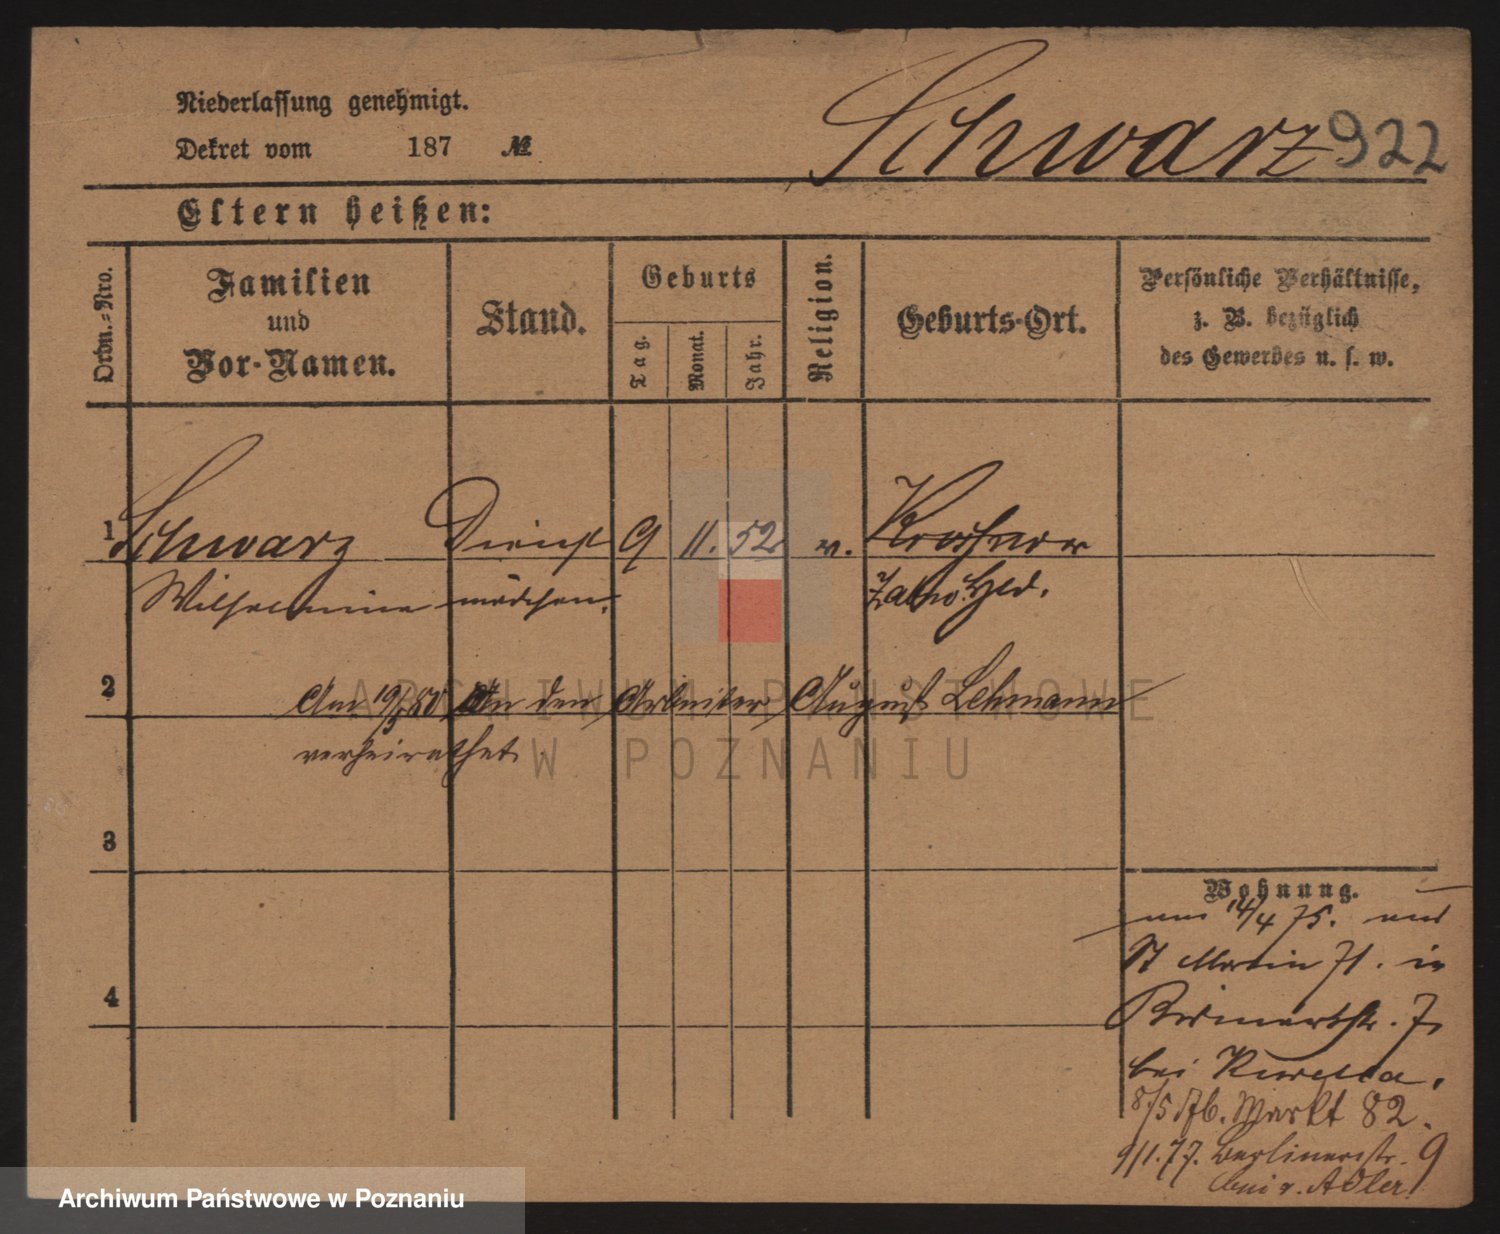 Niederlassung genehmigt.
Dekret vom 187 №
Schwarz 922
Eltern heißen:
Ordn.-Nro.
Familien
und
Vor-Namen.
Stand.
Geburts
Tag.
Monat.
Jahr.
Religion.
Geburts-Ort.
Persönliche Verhältnisse,
z. B. bezüglich
des Gewerbes u. s. w.
1 Schwarz Dienst 9 11. 52
Wilhelmine mädchen.
2
Am 19/5 80 An den Arbeiter August Lehmann
verheirathet
3
4
Wohnung.
14/4 75.
St Martin 71. in
Bismarkstr. 7
bei
8/5 76. Markt 82.
9/1.77. Berlinerstr. 9
bei v. Adler.
ARCHIWUM PAŃSTWOWE
W POZNANIU
Archiwum Państwowe w Poznaniu